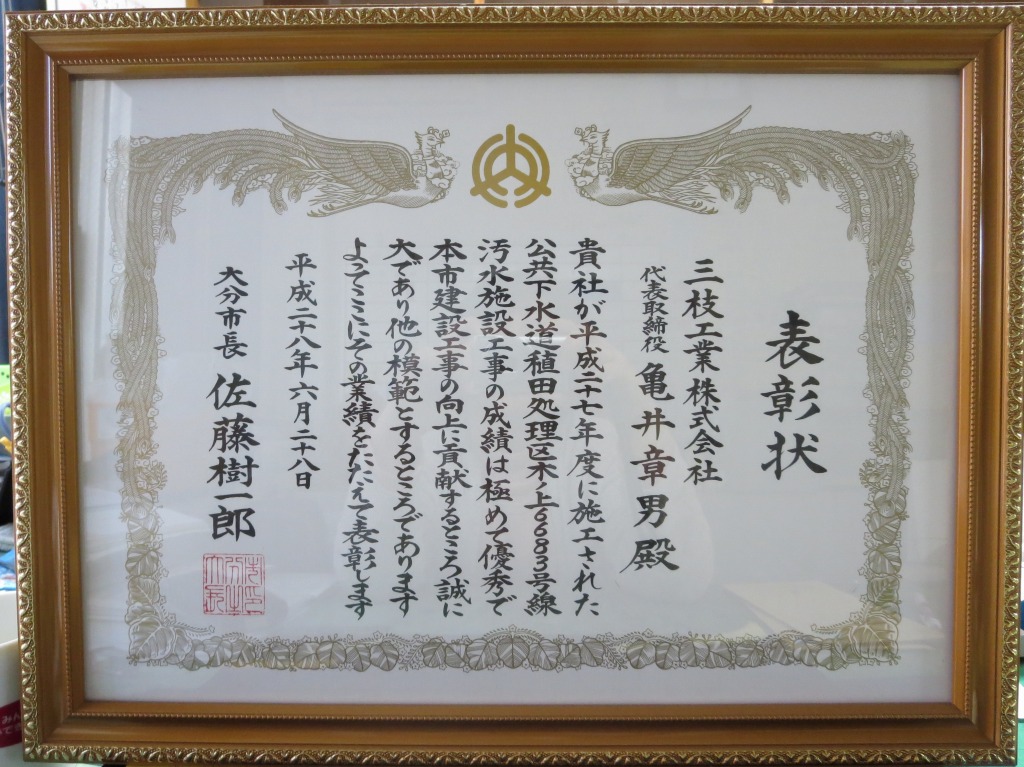 表彰状
三枝工業株式会社
代表取締役 亀井章男殿
貴社が平成二十七年度に施工された
公共下水道稙田処理区木ノ上6683号線
汚水施設工事の成績は極めて優秀で
本市建設工事の向上に貢献するところ誠に
大であり他の模範とするところであります
よってここにその業績をたたえて表彰します
平成二十八年六月二十八日
大分市長 佐藤樹一郎